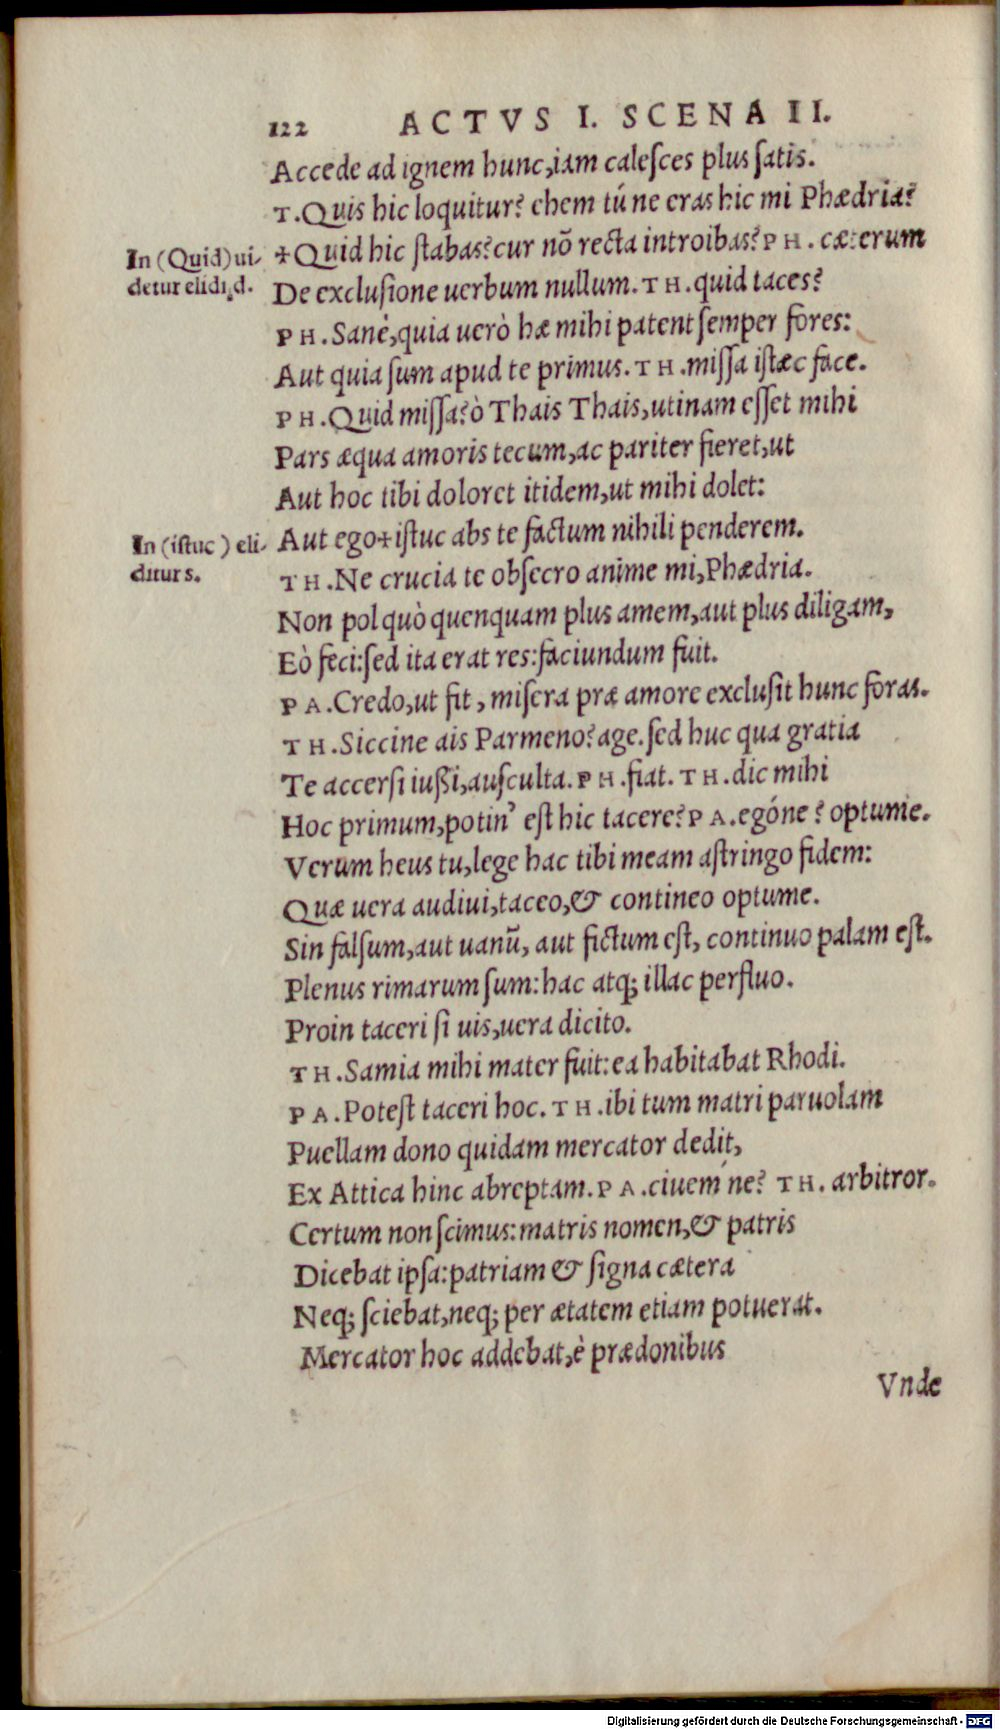 122 ACTVS I. SCENA II.
Accede ad ignem hunc,iam calesces plus satis.
T.Quis hic loquitur? ehem tú ne eras hic mi Phædria?
In (Quid) ui-
detur elidi,d.
+Quid hic stabas?cur nō recta introibas?PH. cæterum
De exclusione uerbum nullum.TH.quid taces?
PH.Sanè,quia uerò hæ mihi patent semper fores:
Aut quia sum apud te primus.TH.missa istæc face.
PH.Quid missa?ò Thais Thais,utinam esset mihi
Pars æqua amoris tecum,ac pariter fieret,ut
Aut hoc tibi doloret itidem,ut mihi dolet:
In (istuc) eli-
ditur s.
Aut ego+istuc abs te factum nihili penderem.
TH.Ne crucia te obsecro anime mi,Phædria.
Non pol quò quenquam plus amem,aut plus diligam,
Eò feci:sed ita erat res:faciundum fuit.
PA.Credo,ut fit, misera præ amore exclusit hunc foras.
TH.Siccine ais Parmeno?age.sed huc qua gratia
Te accersi iußi,ausculta.PH.fiat.TH.dic mihi
Hoc primum,potin' est hic tacere?PA.egóne? optume.
Verum heus tu,lege hac tibi meam astringo fidem:
Quæ uera audiui,taceo,& contineo optume.
Sin falsum,aut uanū, aut fictum est, continuo palam est.
Plenus rimarum sum:hac atq; illac perfluo.
Proin taceri si uis,uera dicito.
TH.Samia mihi mater fuit:ea habitabat Rhodi.
PA.Potest taceri hoc.TH.ibi tum matri paruolam
Puellam dono quidam mercator dedit,
Ex Attica hinc abreptam.PA.ciuem ́ne? TH.arbitror.
Certum non scimus:matris nomen,& patris
Dicebat ipsa:patriam & signa cætera
Neq; sciebat,neq; per ætatem etiam potuerat.
Mercator hoc addebat,è prædonibus
Vnde
Digitalisierung gefördert durch die Deutsche Forschungsgemeinschaft - DFG